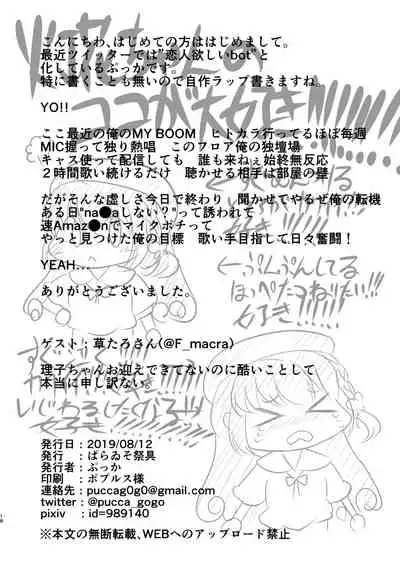 こんにちわ、はじめての方ははじめまして。
最近ツイッターでは"恋人欲しいbot"と
化しているぷっかです。
特に書くことも無いので自作ラップ書きますね。
YO!!
ここ最近の俺のMY BOOM　ヒトカラ行ってるほぼ毎週
MIC握って独り熱唱　このフロア俺の独壇場
キャス使って配信しても　誰も来ねぇ始終無反応
２時間歌い続けるだけ　聴かせる相手は部屋の壁
だがそんな虚しさ今日で終わり　聞かせてやるぜ俺の転機
ある日"na●aしない？"って誘われて
速Amaz●nでマイクポチって
やっと見つけた俺の目標　歌い手目指して日々奮闘！
YEAH...
ありがとうございました。
←ぷんぷんしてる
ほっぺたつねりたい!!
好き!!!!
ゲスト：草たろさん(@F_macra)
理子ちゃんお迎えできてないのに酷いことして
本当に申し訳ない。
発行日：2019/08/12
発行　：ぱらゐそ祭具
発行者：ぷっか
印刷　：ポプルス様
連絡先：puccag0g0@gmail.com
twitter：@pucca_gogo
pixiv　：id=989140
※本文の無断転載、WEBへのアップロード禁止